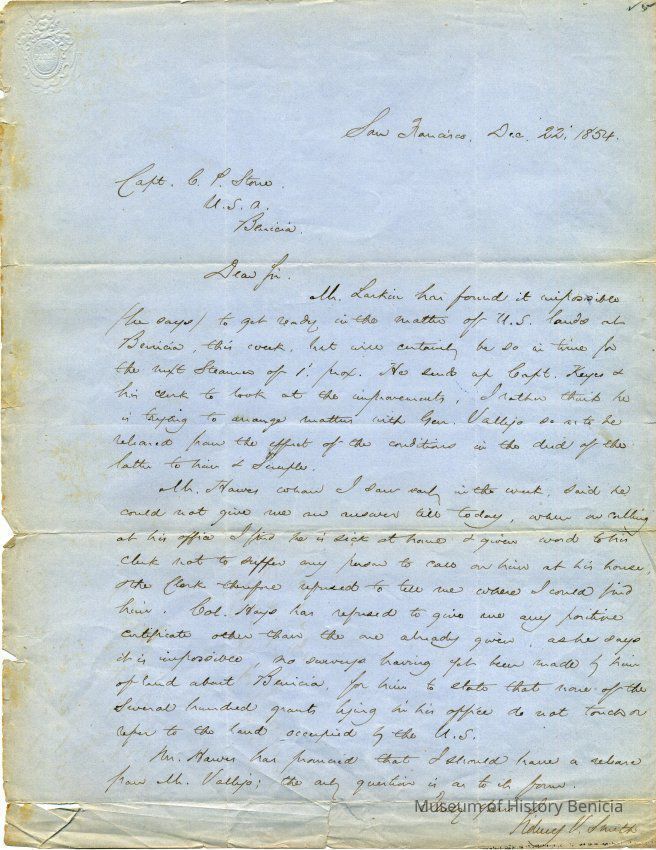 San Francisco, Dec. 22, 1854.
Capt. C. P. Stone.
U. S. A.
Benicia.
Dear Sir.
Mr. Larkin has found it impossible
(he says) to get ready in the matter of U.S. lands at
Benicia, this week, but will certainly be so in time for
the next Steamer of 1' prox. He sends up Capt. Keyes &
his clerk to look at the improvements; I rather think he
is trying to arrange matters with Gen. Vallejo so as to be
released from the effect of the conditions in the deed of the
latter to him & Semple.
Mr. Hawes whom I saw early in the week, said he
could not give me an answer till today, when on calling
at his office I find he is sick at home & given word to his
clerk not to suffer any person to call on him at his house,
& the Clerk therefore refused to tell me where I could find
him. Col. Hays has refused to give me any positive
certificate other than the one already given, as he says
it is impossible, no surveys having yet been made by him
of land about Benicia, for him to state that none of the
several hundred grants lying in his office do not touch or
refer to the land occupied by the U.S.
Mr. Hawes has promised that I should have a release
from Mr. Vallejo; the only question is as to its form.
Sidney V. Smith
Museum of History Benicia